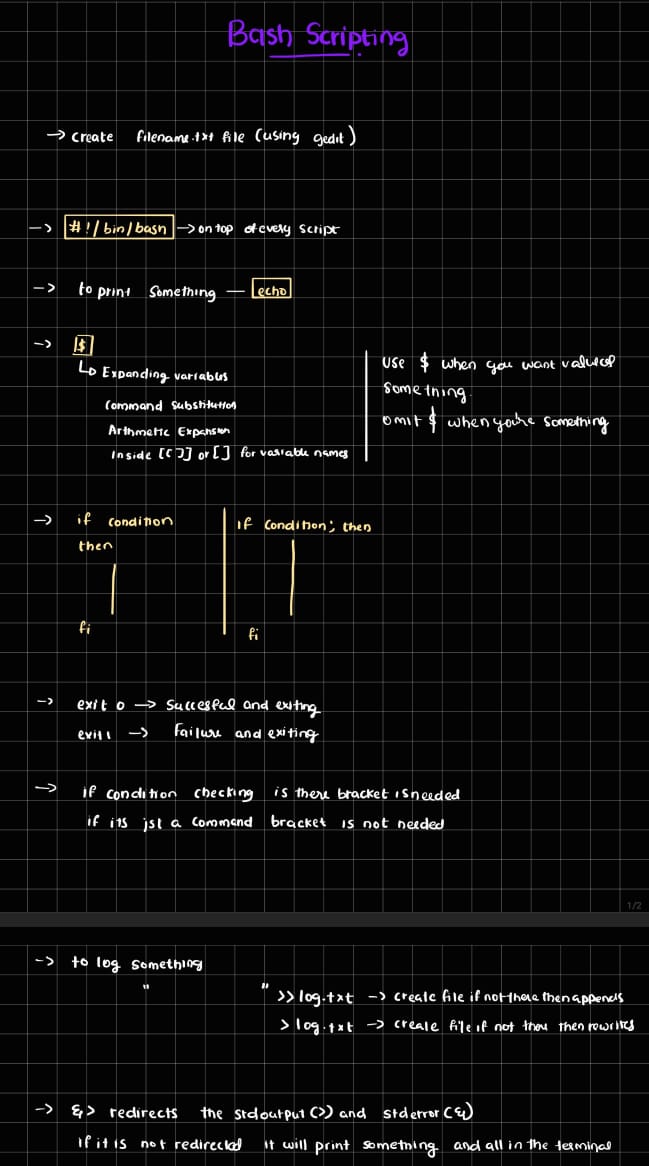 Bash Scripting
→ create filename.txt file (using gedit)
→ #!/bin/bash → on top of every script
→ to print something — echo
→ $
↳ Expanding variables
Command Substitution
Arthmetic Expansion
Inside [[ ]] or [ ] for variable names
use $ when you want value of
something.
omit $ when you're something
→ if condition
then
fi
if condition; then
fi
→ exit 0 → Succesful and exiting
exit 1 → Failure and exiting
→ if condition checking is there bracket is needed
if its jst a command bracket is not needed
1/2
→ to log something
" " >> log.txt → create file if not there then appends
> log.txt → create file if not then rewrites
→ &> redirects the stdoutput (>) and stderror (&)
If it is not redirected it will print something and all in the terminal